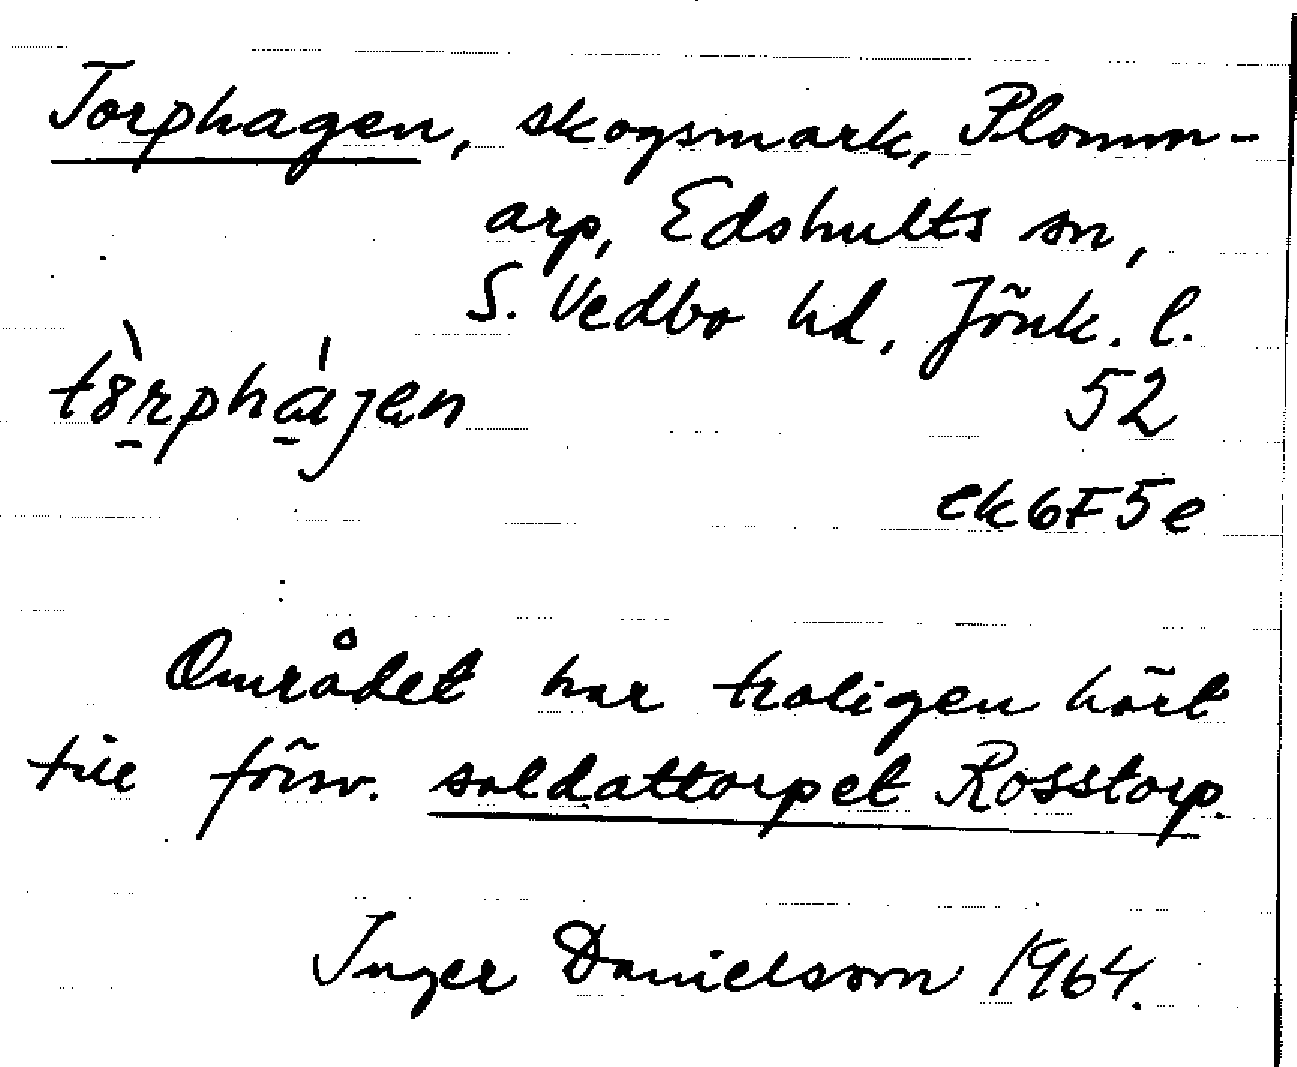 Torphagen, skogsmark, Plomm-
arp, Edshults sn,
S. Vedbo hd, Jönk. l.
52
ek 6F5e
Området har troligen hört
till försv. soldattorpet Rosstorp.
Inger Danielsson 1964.